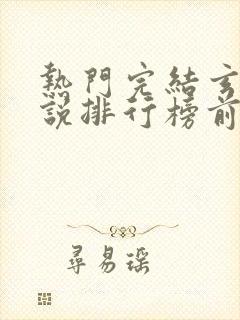 熱門完結玄
說排行榜前
尋易瑶